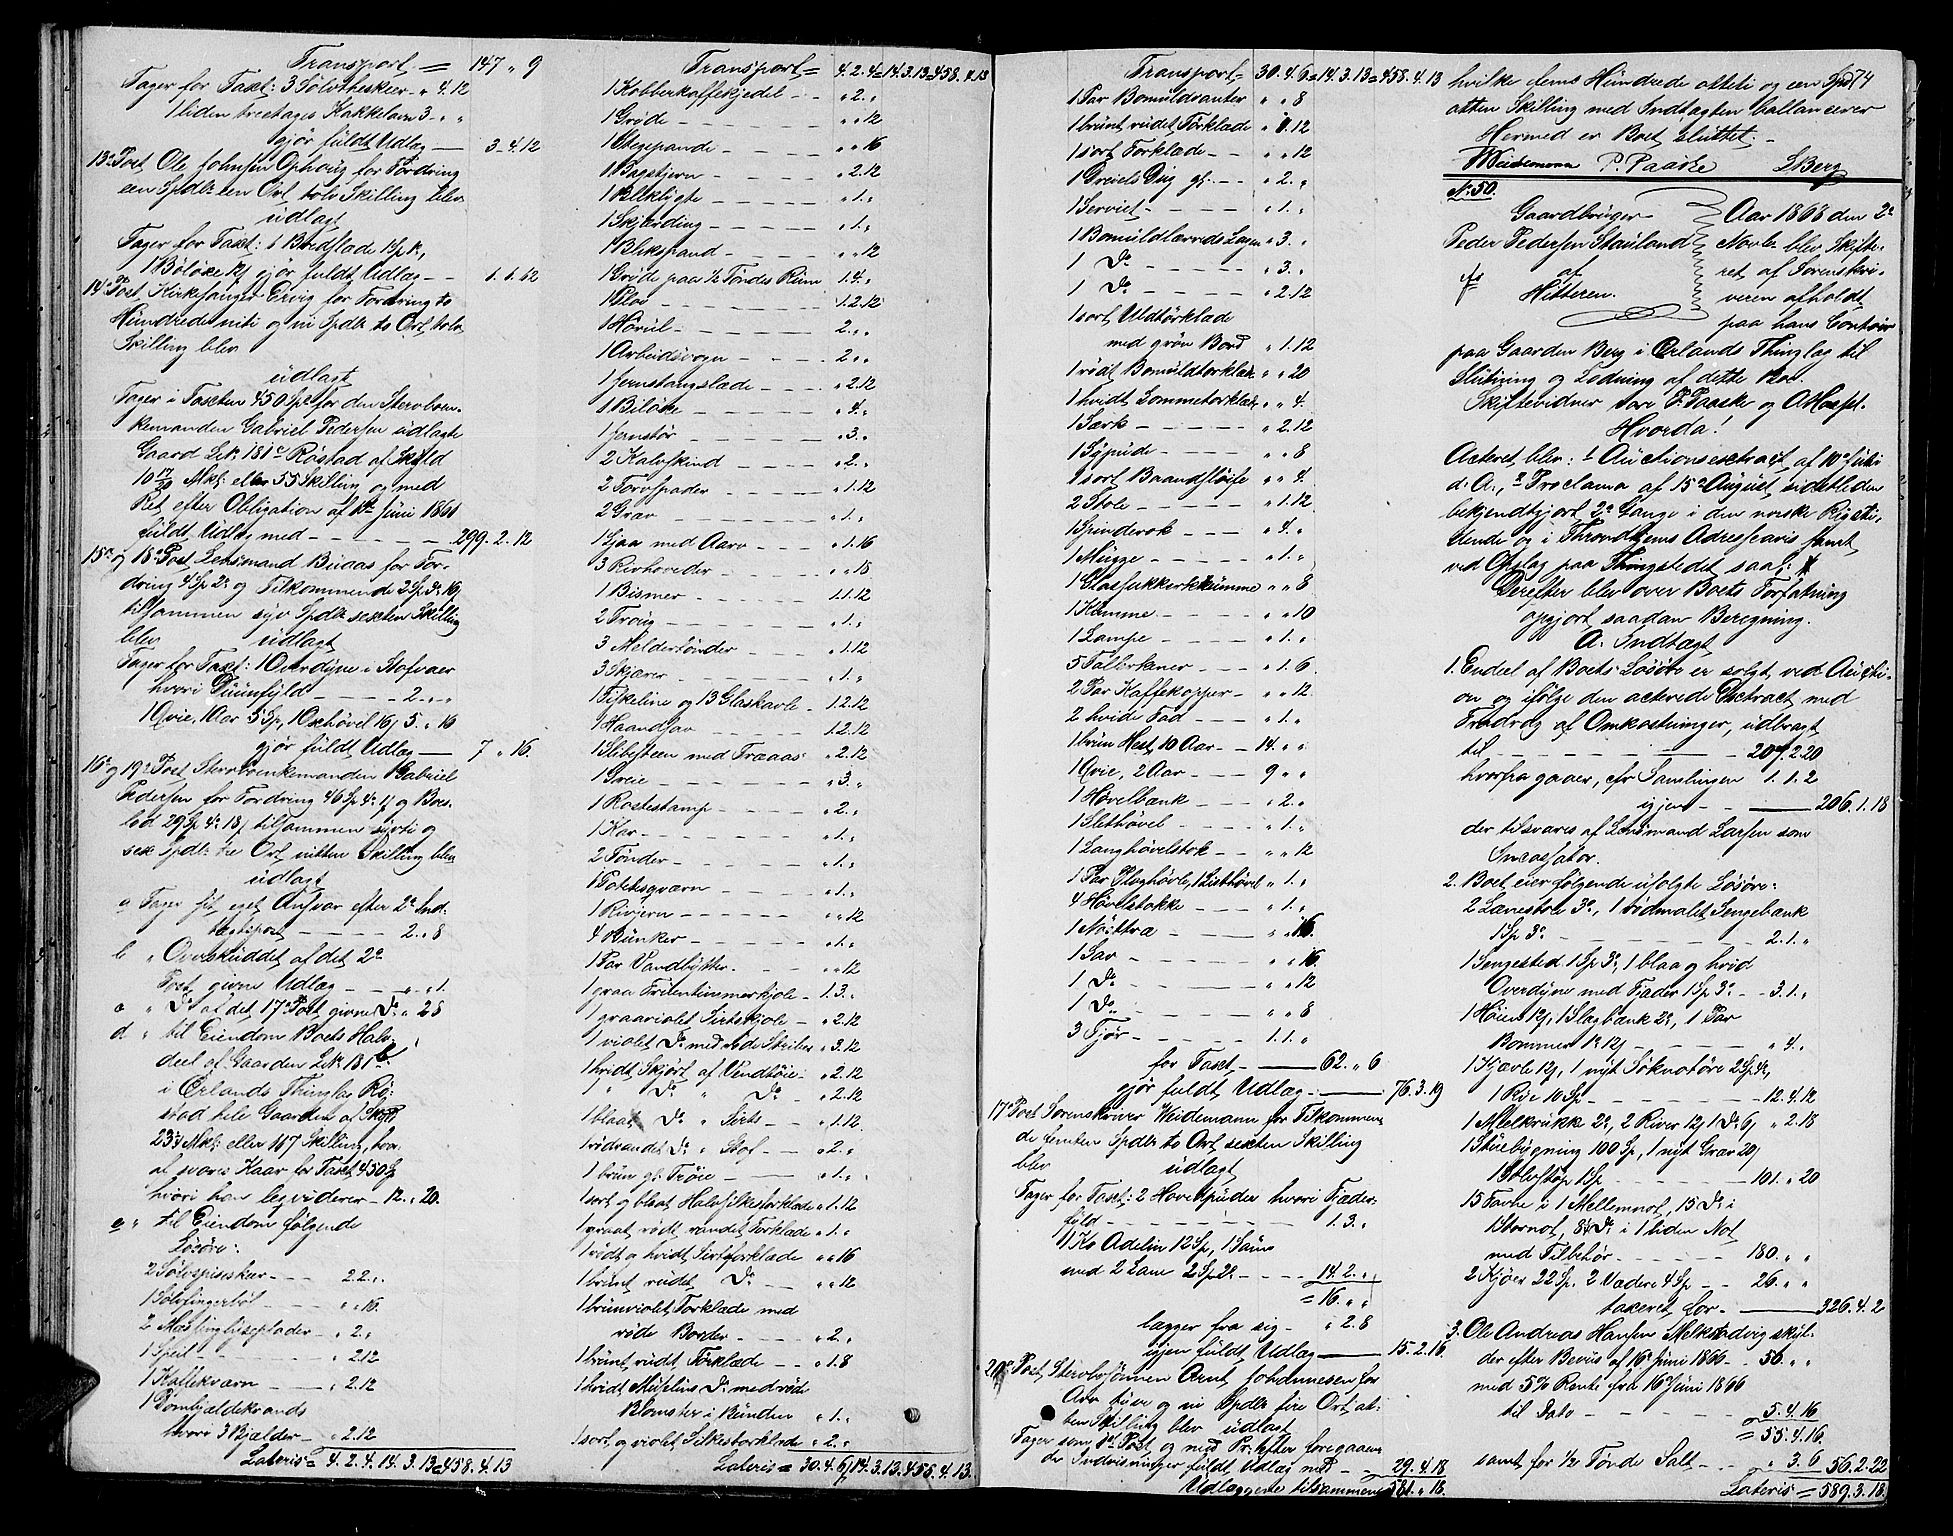 Transport = 147 „ 9
Tager for Taxt: 3 Sølvtheskeer „ 4.12
1 liden treetages Kakkelovn 3 „ „
gjør fuldt Udlag — 3.4.12
13de Post Ole Johnsen Ophoug for Fordring
een Spdlr een Ort tolv Skilling blev
udlagt
Tager for Taxt: 1 Bredslæde 1 Sp.
gjør fuldt Udlag — 1.1.12
14de Post, Kirkesanger Ervig for Fordring to
Hundrede niti og ni Spdlr to Ort tolv
Skilling blev
udlagt
Tager i Taxten 450 Sp for den Stervboen-
kemanden Gabriel Pedersen udlagte
Gaard Lnr 181c Røstad af Skyld
eller 55 Skilling og med
Ret efter Obligation af Juni 1861
fuldt Udlæg med — 299.2.12
15de og 18de Post Lensmand Buaas for For-
dring 4 Sp 2 og Tilkommende
tilsammen syv Spdlr sexten Skilling
blev udlagt
Tager for Taxt: 1 Overdyne i Stofvaer
hvori Duunfyld — 2 „ „
1 Qvie, 1 Aar 5 Sp, 1 5 „ 16
gjør fuldt Udlag — 7 „ 16.
16de og 19de Post, Stervboenkemanden Gabriel
Pedersen for Fordring 46 Sp og Boes-
lod 29 Sp 4 18, tilsammen sytti og
sex Spdlr tre Ort nitten Skilling blev
udlagt
a Tager sit eget Ansvar efter 2de Ind-
tægtspost — 2 „ 8
b „ Overskuddet af det 2de
Post givne Udlag — „ „ 1.
c „ Do af det 17de Post givne Do „ 2 8
d „ til Eiendom Boets Halv-
deel af Gaarden Lnr 181b
i Ørlands Thinglag Rø-
stad hele Gaarden af Skyld
eller 117 Skilling, hvor-
af svares Kaar for Taxt 450 Sp
hvori han legviderer — 12 „ 20.
e „ til Eiendom følgende
Løsøre:
2 Sølvspiseskeer — 2.2 „
1 Sølvfingerbøl — „ „ 16
2 Messinglyseplader — „ 2 „
1 Speil — „ 2.12
1 Kaffekværn — „ 2.12
1 Dombjældekrands
hvori 3 Bjælder — „ 2.12
Lateris = 4.2.4 14.3.13 = 458.4.13
Transport = 4.2.4 = 14.3.13 = 458.4.13
1 Kobberkaffekjedel — „ 2 „
1 Gryde — „ „ 12
1 Stegepande — „ „ 16
1 Bagstjern — „ 2.12
1 Bliklygte — „ 1 „
1 Skjærding — „ 1 „
1 Blikspand — „ „ 12
1 Gryde paa ½ Tøndes Rum 1.4 „
1 Plov — 1.2.12
1 Hørul — 2 „ „
1 Arbeidsvogn — 2 „ „
1 Jernstangslæde — „ 2.12
1 Biløxe — „ 4 „
1 Jernstør — „ 3 „
2 Kalvskind — „ 2 „
2 Torvspader — „ 1.12
2 Grev — „ 1 „
1 Ljaa med Aarv — „ 1.16
3 Rivhoveder — „ „ 18
1 Bismer — 1.1.12
2 Troug — „ 1 „
3 Meldertønder — „ 1.12
3 Skjærer — „ 1 „
1 Fiskeline og 13 Glaskavle — 1.2.12
1 Haandsav — 1.2.12
1 Slibesteen med Træaas „ 2.12
1 Greie — „ 3 „
1 Rostestamp — „ 2 „
1 Kar — „ 1 „
2 Tønder — „ 1 „
1 Potetesqværn — „ 1 „
1 Rivjern — „ „ 12
4 Bunker — „ 1 „
1 Par Vandbytter — „ „ 12
1 graa Trilentinsmerkjole — 1.3 „
1 graaviolet Sirtskjole — „ 2.12
1 violet Do med røde Striber „ 3.12
1 hvidt Skjørt af Vendtøie — „ 2.12
1 „ Do „ Do — „ 2.12
1 blaat Do „ Sirts — „ 1.12
1 rødrandet Do „ Stof — „ 2 „
1 brun gl. Trøie — „ 1 „
1 sort og blaat Halvsilketørklæde „ 1.12
1 graat rødt randet Tørklæde — „ 1 „
1 rødt og hvidt Sirtstørklæde „ „ 16
1 brunt rudet Do — „ „ 12
1 brunviolet Tørklæde med
røde Border — „ 2 „
1 brunt rudt Tørklæde — „ 1.8
1 hvidt Muselins Do med røde
Blomster i Bunden „ 1 „
1 sort og violet Silketørklæde „ 2 „
Lateris = 30.4.6 14.3.13. 458.4.13.
Transport = 30.4.6 = 14.3.13 = 458.4.13
1 Par Bomuldsvanter „ „ 8
1 brunt rudet Tørklæde „ 1.12
1 sort Tørklæde — „ „ 12
1 Dreiels Dug gl. — „ 2 „
1 Serviet — „ 1 „
1 Bomuldlærreds Lagen „ 3 „
1 Do — „ 3 „
1 Do — „ 2.12
1 sort Uldtørklæde
med grøn Bord „ 1.12
1 rødt Bomuldtørklæde „ „ 20
1 hvidt Lommetørklæde „ „ 4.
1 Særk — „ 2.12
1 Sypude — „ „ 8
1 sort Baandsløife „ „ 4
2 Stole — „ 1.12
1 Spinderok — „ 4 „
1 Mugge — „ 1 „
1 Glassukkerkumme „ „ 8
1 Kumme — „ „ 10
1 Lampe — „ 1 „
5 Tallerkener — „ 1.6
2 Par Kaffekopper — „ „ 12
2 hvide Fad — „ 1 „
1 brun Hest, 10 Aar — 14 „ „
1 Qvie, 2 Aar — 9 „ „
1 Høvelbænk — „ 2 „
1 Slethøvel — „ 1 „
1 Langhøvelstok — „ „ 12
1 Par Ploghøvle, 1 Listhøvel „ 1 „
4 Høvelstokke — „ 1 „
1 — „ „ 16.
1 Sav — „ „ 16.
1 Do — „ „ 12
1 Do — „ „ 8
3 Fjør — 1.1 „
for Taxt — 62 „ 6
gjør fuldt Udlæg — 76.3.19
17de Post Sorenskriver Weidemann for Tilkommen-
de femten Spdlr to Ort sexten Skilling
blev udlagt
Tager for Taxt: 2 Hovedpuder hvori Fjeder-
fyld — 1.3 „
1 Ko Adelin 12 Sp, 1 Sau
med 2 Lam 2 Sp 2 — 14.2 „
= 16 „ „
lægger fra sig — „ 2.8
igjen fuldt Udlæg — 15.2.16
20de Post Stervbosønnen Arnt Johannesen for
Arv tyve og ni Spdlr fire Ort at-
ten Skilling blev udlagt
Tager som Post, og med Pr: efter foregaaen-
de Indvisninger fuldt Udlæg med — 29.4.18
Udlæggene tilsammen 581 „ 18.
74
hvilke fem Hundrede otteti og een Spd
atten Skilling med Indtægten ballancerer
Hermed er Boet sluttet. —
Weidemann P. Paaske LBerg
No 50.
Gaardbruger
Peder Pedersen Stauland
af
Hitteren.
Aar 1868 den 2de
Novbr blev Skifte-
ret af Sorenskri-
veren afholdt
paa hans Contoir
paa Gaarden Berg i Ørlands Thinglag til
Slutning og Lodning af dette Bo.
Skiftevidner vare P. Paaske og A Hospt.
Hvorda!
Acteret blev: 1 Auctionsextract af 10de Juli
d. A., 2 Proclama af 15de August sidstleden
bekjendtgjort 2de Gange i den norske Rigsti-
dende og i Throndhjems Adresseavis samt
ved Opslag paa Thingstedet saa:
Derefter blev over Boets Forfatning
opgjort saadan Beregning.
A. Indtægt
1. Endeel af Boets Løsøre er solgt ved Aucti-
on og ifølge den acterede Extract med
Fradrag af Omkostninger, udbragt
til — 207.2.20
hvorfra gaaer, efr Samlingen 1.1.2
igjen — 206.1.18
der tilsvares af Lensmand Larsen som
Incassator.
2. Boet eier følgende usolgte Løsøre:
2 Lænestole 3, 1 rødmalet Sengebænk
1 Sp 3 — 2.1 „
1 Sengested 1 Sp 3, 1 blaa og hvid
Overdyne med Fjæder 1 Sp 3 — 3.1 „
1 Høien 12, 1 Slagbænk 2, 1 Par
Bommer — „ 4 „
1 Kjævle 12, 1 nyt Søkvotøre 2 Sp 4,
1 Røe 10 Sp — 12.4.12
1 Melkekrukk 2, 2 River 12, 1 Do 6, „ 2.18
1 Stuebygning 100 Sp, 1 nyt Grev 20,
1 Sp — 101 „ 20
15 Favne i 1 Mellemnot, 15 Do i
1 Stornot, Do i 1 liden Not
med Tilbehør — 180 „ „
2 Kjøer 22 Sp. 2 Vædere 4 Sp — 26 „ „
taxeret for — 326.4.2
3. Ole Andreas Hansen Melkstadvig skyl-
der efter Beviis af 16de Juni 1866 — 50 „ „
med 5% Rente fra 16de Juni 1866
til Dato — 5.4.16
= 55.4.16.
samt for ½ Tønde Salt — „ 3.6 56.2.22
Lateris = 589.3.18.